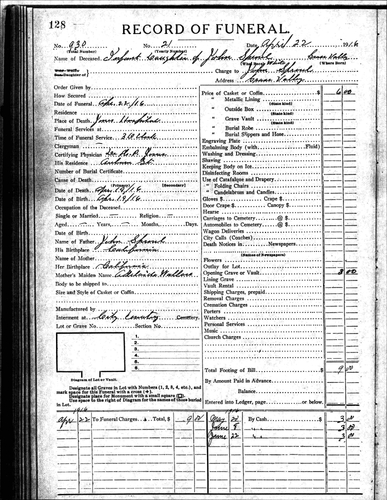 128
RECORD OF FUNERAL.
No. 930 No. 21 Date, April 22 1916
(Total Number) (Yearly Number)
Name of Deceased, Infant Daughter of John
Charge to John
Address Grass Valley
Order Given by
How Secured
Date of Funeral Apr. 22/16
Residence
Place of Death, Jones Hospital
Funeral Services at
Time of Funeral Service, 3 o'clock
Clergyman
Certifying Physician Dr. Jones
His Residence Auburn St.
Number of Burial Certificate
Cause of Death
(Primary) (Secondary)
Date of Death Apr. 19/16
Date of Birth Apr. 19/16
Occupation of the Deceased
Single or Married Religion
Aged Years, Months, Days.
Date of Birth
Name of Father, John
His Birthplace California
Name of Mother
Her Birthplace California
Mother's Maiden Name
Body to be shipped to
Size and Style of Casket or Coffin,
Manufactured by
Interment at City Cemetery
Lot or Grave No. Section No.
Diagram of Lot or Vault.
Designate all Graves in Lot with Numbers (1, 2, 3, 4, etc.), and
mark space for this Funeral with a cross
Designate place for Monument with a small square
Use space to the right of Diagram for the names of those buried
in Lot.
Price of Casket or Coffin, 6 00
(State kind)
" Metallic Lining
" Outside Box
(State kind)
" Grave Vault
(State kind)
" Burial Robe
" Burial Slippers and Hose
Engraving Plate
Embalming Body (with Fluid)
Washing and Dressing
Shaving
Keeping Body on Ice
Disinfecting Rooms
Use of Catafalque and Drapery
" Folding Chairs
" Candelabrum and Candles
Gloves $ Crape $
Door Crape $ Canopy $
Hearse
Carriages to Cemetery @ $
Automobiles to Cemetery @ $
Wagon Deliveries
City Calls (Coaches)
Death Notices in Newspapers
(Names of Newspapers)
Flowers
Outlay for Lot
Opening Grave or Vault 3 00
Lining Grave
Vault Rental
Shipping Charges, prepaid
Removal Charges
Cremation Charges
Porters
Watchers
Personal Services
Music
Church Charges
Total Footing of Bill, $ 9 00
By Amount Paid in Advance
Balance
Entered into Ledger, page or below.
1916
Apr 22 To Funeral Charges Total, $ 9 00
By Cash 3 00
June 8 " 3 00
June 22 " 3 00